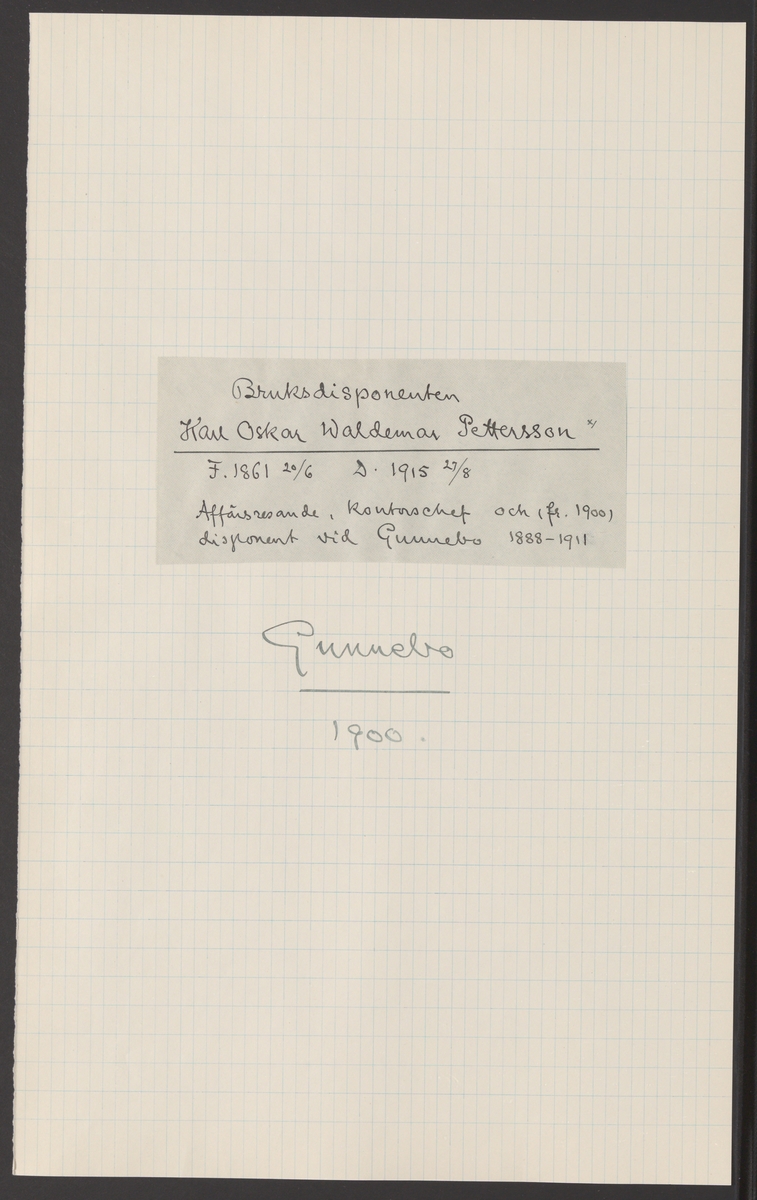 Bruksdisponenten
Karl Oskar Waldemar Pettersson x/
F. 1861 20/6 D. 1915 27/8
Affärsresande, kontorschef och (fr. 1900)
disponent vid Gunnebo 1888-1911
Gunnebo
1900.